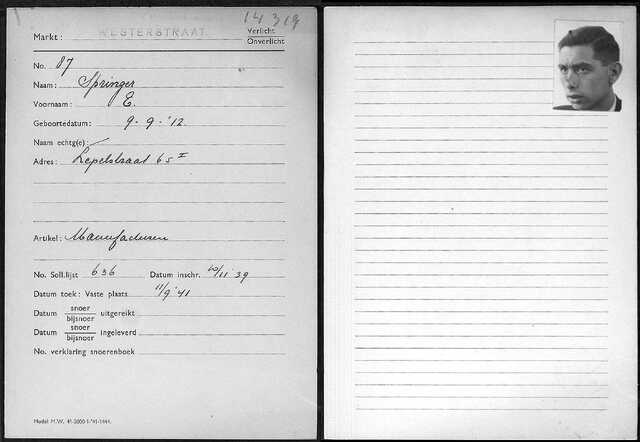 14319
Markt: WESTERSTRAAT Verlicht
Onverlicht
No. 87
Naam: Springer
Voornaam: E.
Geboortedatum: 9-9-'12.
Naam echtg(e):
Adres: Lepelstraat 65 I
Artikel: Manufacturen
No. Soll.lijst 636 Datum inschr. 20/11 39
Datum toek: Vaste plaats 11/9 '41
Datum snoer
bijsnoer uitgereikt
Datum snoer
bijsnoer ingeleverd
No. verklaring snoerenboek
Model M.W.